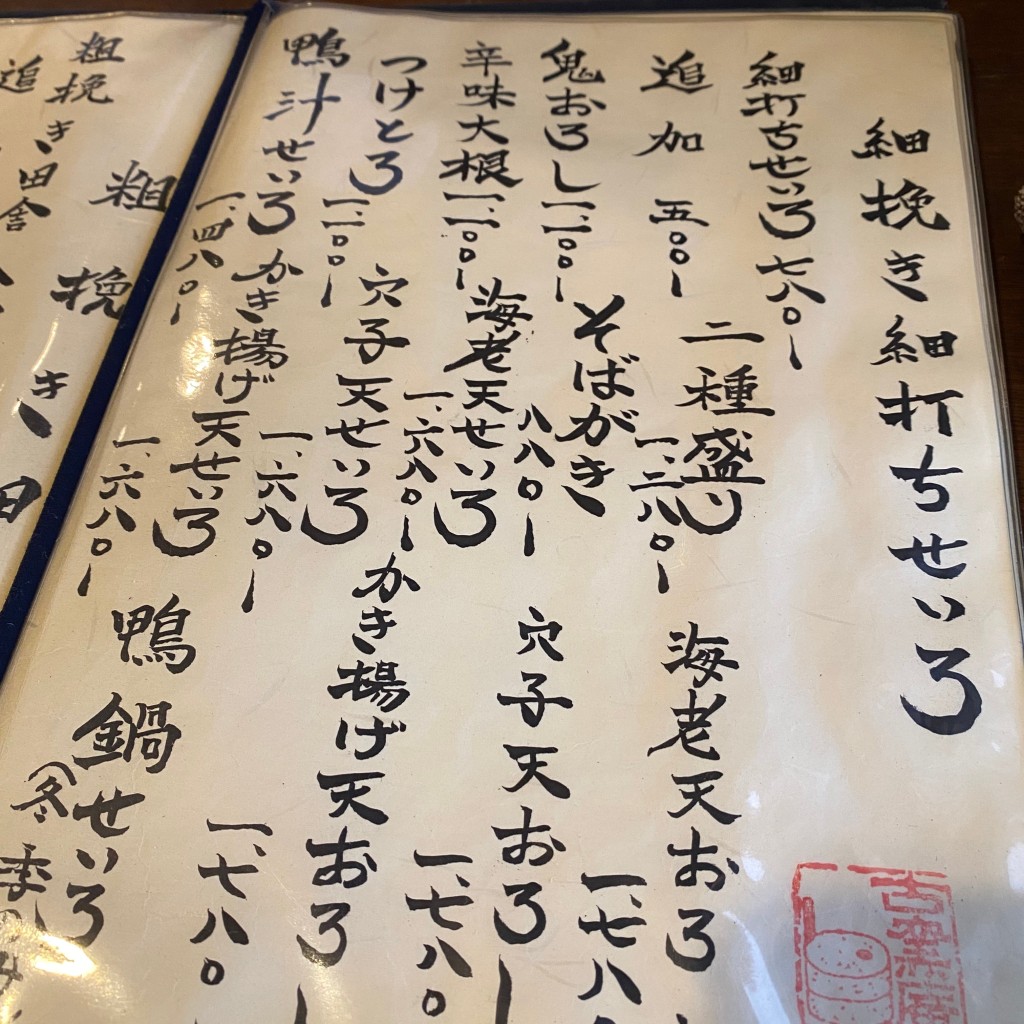 細挽き細打ちせいろ
細打ちせいろ 七八〇ー
追加 五〇〇ー
二種盛り 一、二八〇ー
海老天おろ
一、七八
鬼おろし 一、一〇〇ー
そばがき 八八〇ー
穴子天おろし
一、七八〇
辛味大根 一、一〇〇ー
海老天せいろ 一、六八〇ー
かき揚げ天おろし
一、七八〇
つけとろ 一、一〇〇ー
穴子天せいろ 一、六八〇ー
鴨汁せいろ 一、四八〇ー
かき揚げ天せいろ 一、六八〇ー
鴨鍋せいろ
(冬季
粗挽き田
粗挽き田舎
追